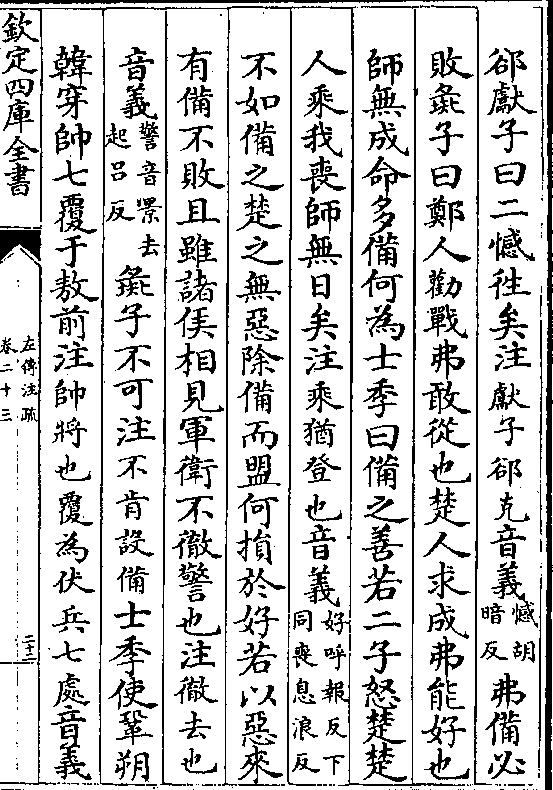 郤獻子曰二憾徃矣注獻子郤克音義憾胡暗反弗備必
敗彘子曰鄭人勸戰弗敢從也楚人求成弗能好也
師無成命多備何為士季曰備之善若二子怒楚楚
人乘我喪師無日矣注乘猶登也音義好呼報反下同喪息浪反
不如備之楚之無惡除備而盟何損於好若以惡來
有備不敗且雖諸侯相見軍衛不徹警也注徹去也
音義警音景去起呂反彘子不可注不肯設備士季使鞏朔
韓穿帥七覆于敖前注帥將也覆為伏兵七處音義
欽定四庫全書
左傳注疏
卷二十三
二十二